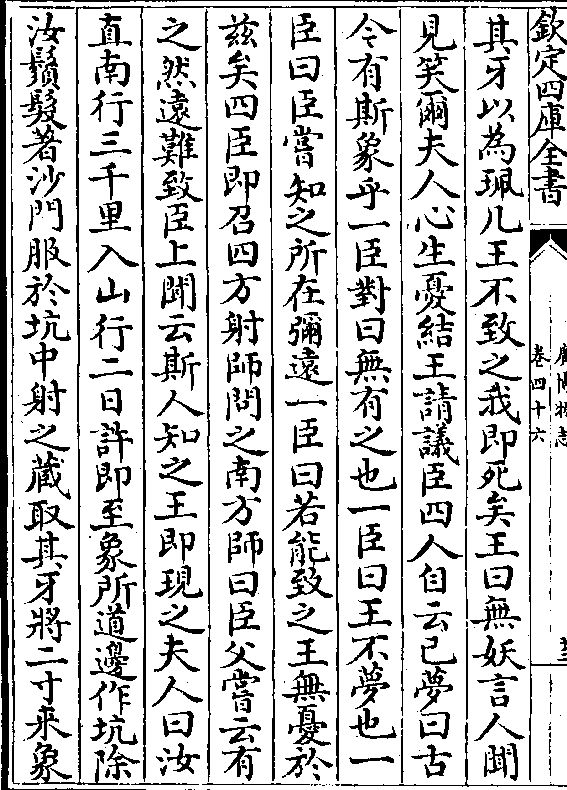 欽定四庫全書
廣博物志
卷四十六
其牙以為珮几王不致之我即死矣王曰無妖言人聞
見笑爾夫人心生憂結王請議臣四人自云已夢曰古
今有斯象乎一臣對曰無有之也一臣曰王不夢也一
臣曰臣嘗知之所在彌遠一臣曰若能致之王無憂於
兹矣四臣即召四方射師問之南方師曰臣父嘗云有
之然遠難致臣上聞云斯人知之王即現之夫人曰汝
直南行三千里入山行二日許即至象所道邊作坑除
汝鬚髮著沙門服於坑中射之蔵取其牙將二寸來象